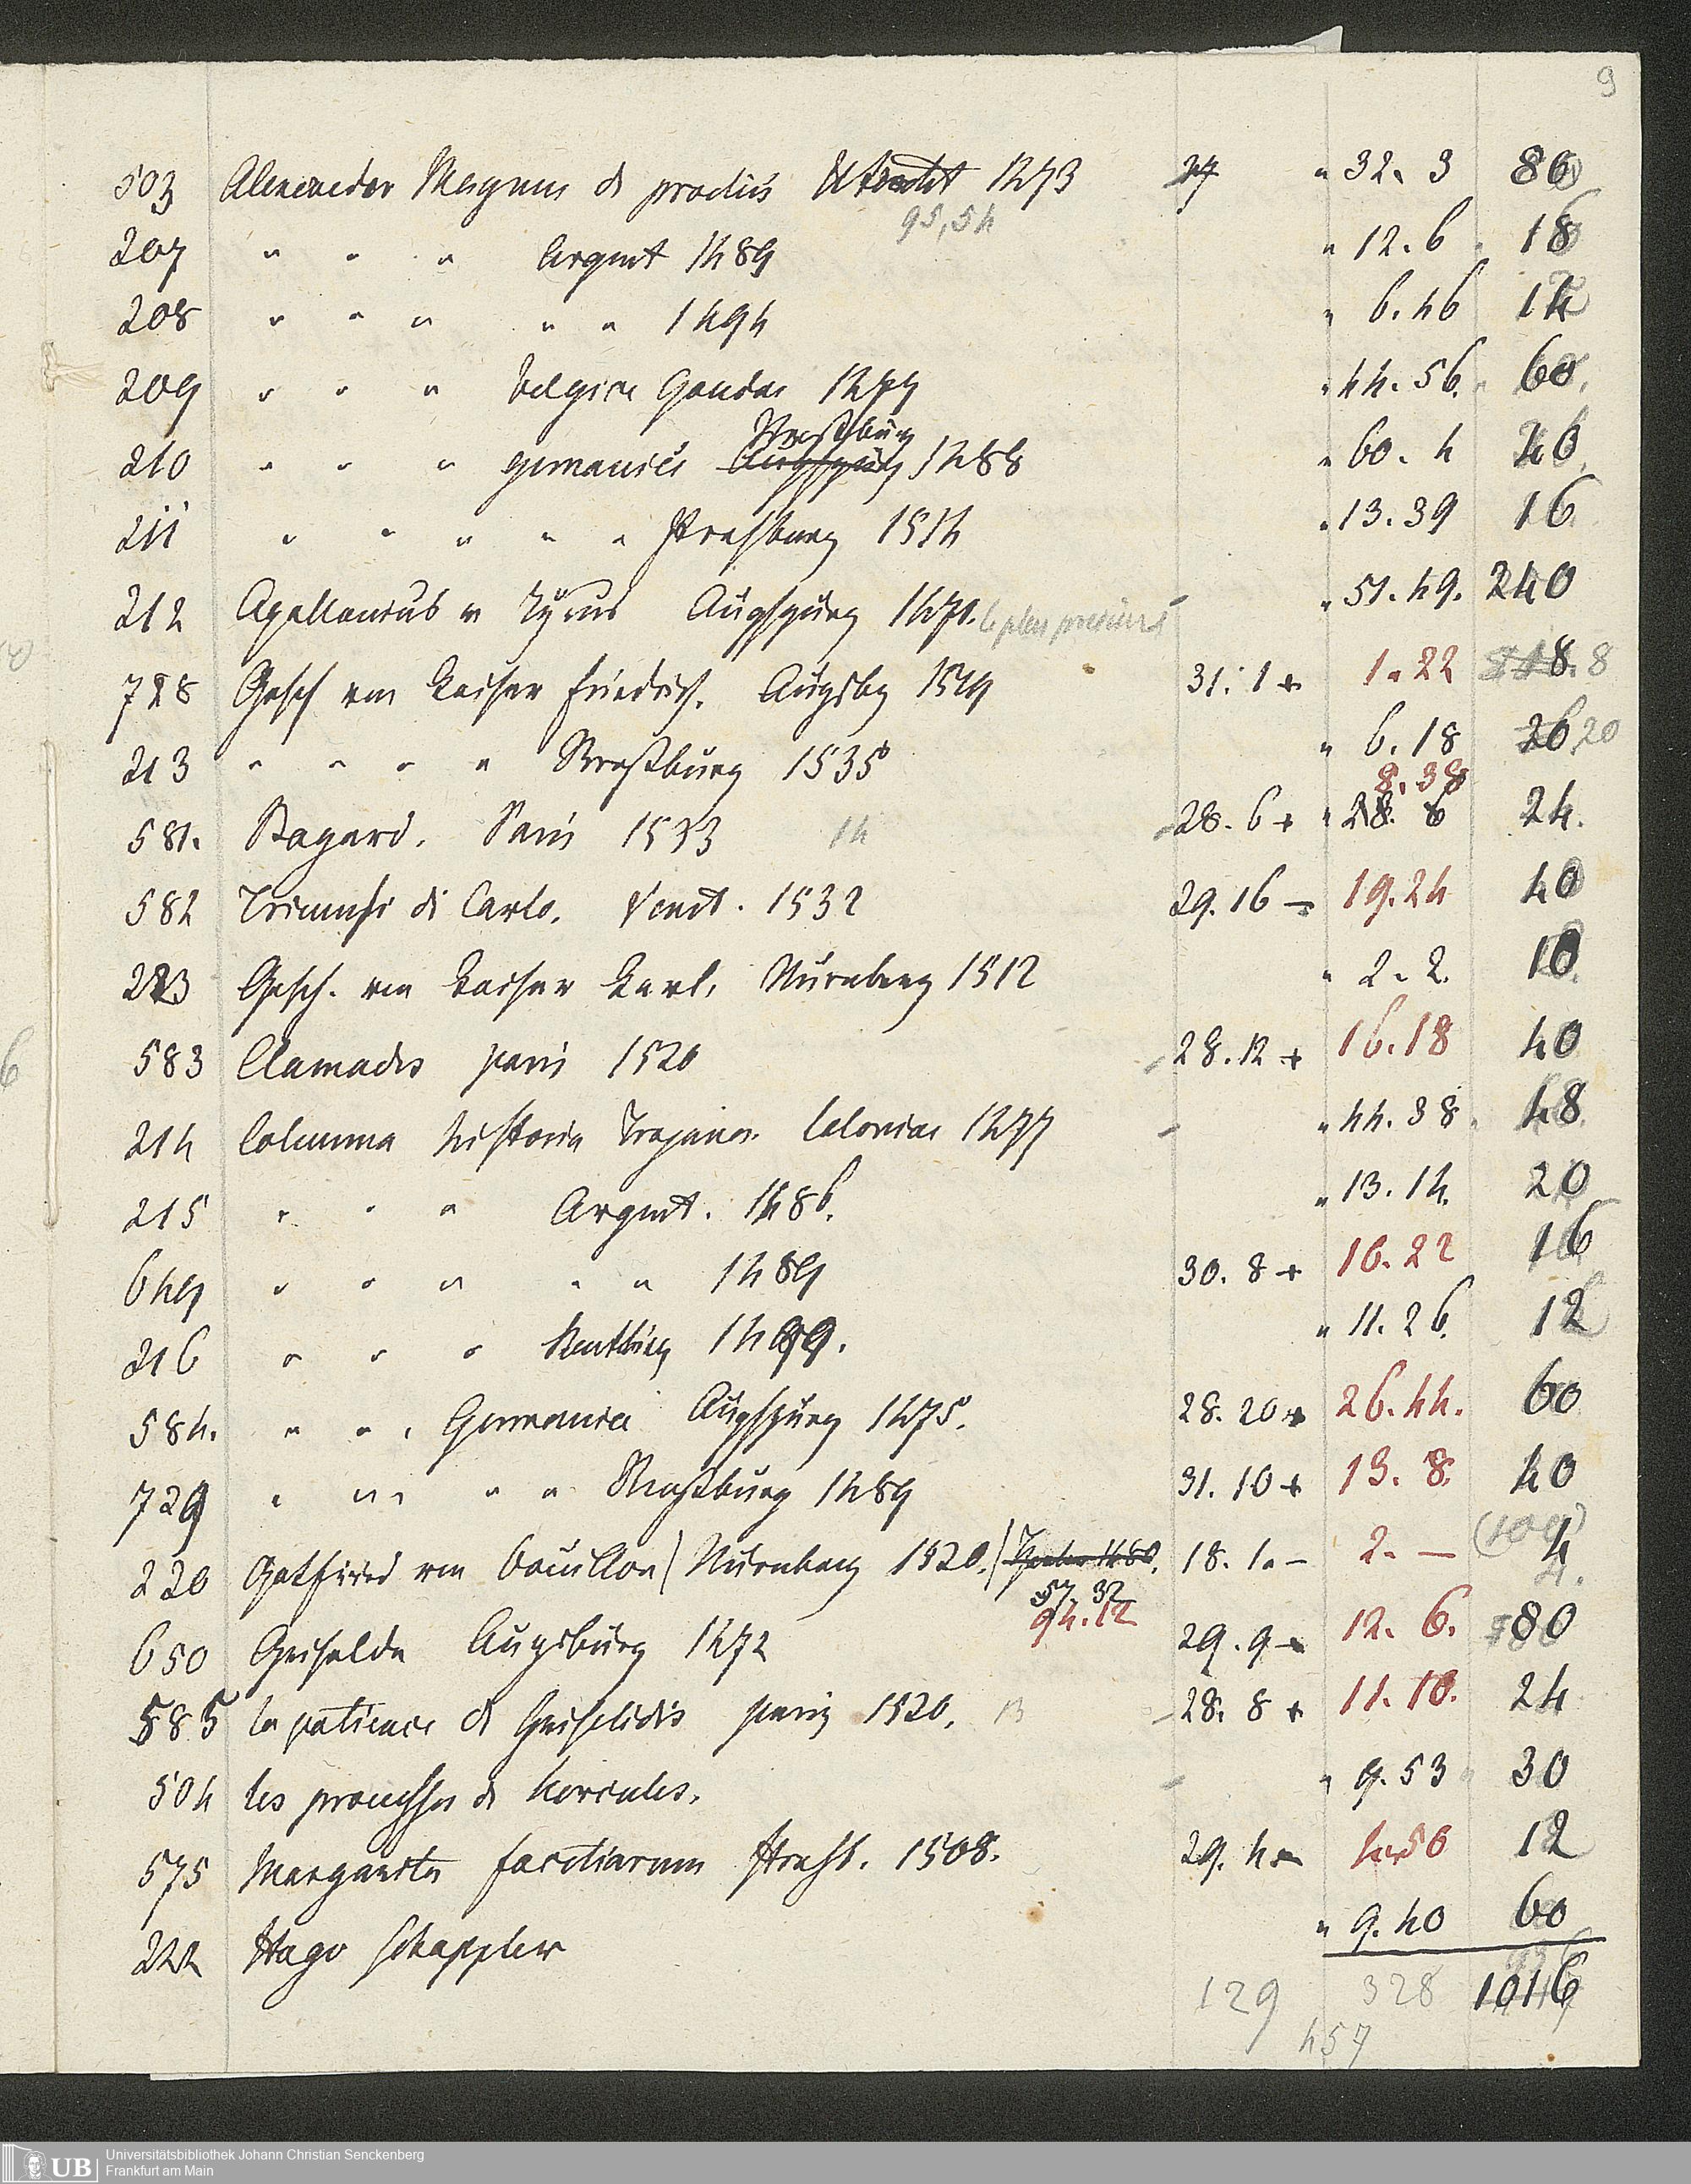 9
503 Alexander Magnus de proeliis Utrecht 1473 " 32. 3 86
95,54
207 " " " Argent 1489 " 12. 6 18
208 " " " " " 1494 " 6. 46 14
209 " " " belgice Goudae 1477 " 44. 56. 60.
Strasburg
210 " " " germanice Augspurg 1488 " 60. 4 40
211 " " " " " Strasburg 1514 " 13. 39 16
212 Apollonius v Tyrus Augspurg 1471. le plus precieux " 51. 49. 240
728 Gesch von Kaiser Friedrich. Augsbg 1519 31. 1 + 1. 22 8. 8
213 " " " " Strasburg 1535 " 6. 18 20 20
8. 38
581. Bayard. Paris 1533 14 28. 6 + " 28. 6 24.
582 Triumfi di Carlo. Venet. 1532 29. 16 - 19. 24 40
223 Gesch. von Kaiser Karl. Nürnberg 1512 " 2. 2. 10
583 Clamades paris 1520 28. 12 + 16. 18 40
214 Columna historia Trojana Coloniae 1477 " 44. 38. 48
215 " " " Argent. 1486. " 13. 14. 20
649 " " " " " 1489 30. 8 + 10. 22 16
216 " " " 1499. " 11. 26. 12
584. " " " Germanice Augspurg 1475. 28. 20 + 26. 44. 60
729 " " " " " Strasburg 1489 31. 10 + 13. 8. 40
(100)
220 Gotfried von Bouillon Nürnberg 1520. 18. 1. - 2. — 4
57. 32
94. 12
650 Griselda Augsburg 1472 29. 9 - 12. 6. 80
585 la patience de Griselidis paris 1520. 13 28. 8 + 11. 10. 24
504 les prouesses de hercules. " 9. 53 30
575 Margarita facetiarum Strasb. 1508. 29. 4 - 4. 56 12
222 Hugo Schappler " 9. 40 60
129 328 1016
457
UB Universitätsbibliothek Johann Christian Senckenberg
Frankfurt am Main